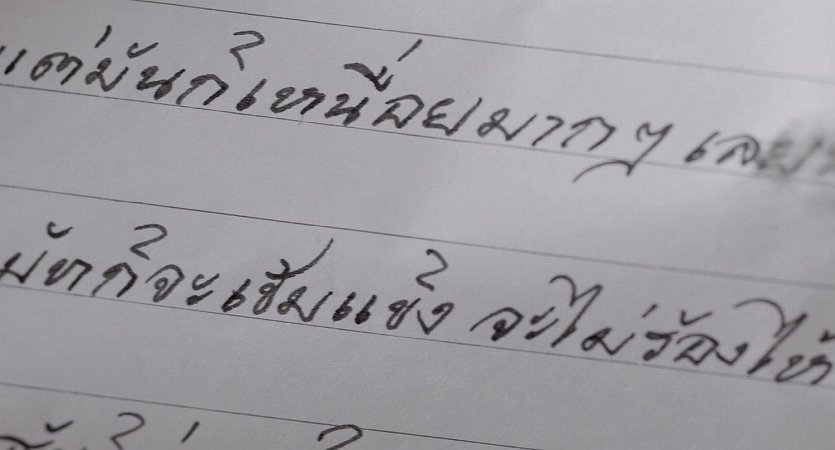 แต่มันก็เหนื่อยมากๆ เลย
มัทก็จะเข้มแข็ง จะไม่ร้องไห้